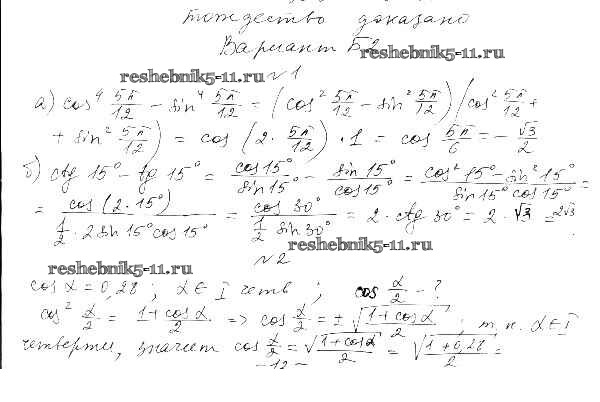 тождество доказано
Вариант Б2
reshebnik5-11.ru
reshebnik5-11.ru
№1
а) cos⁴ 5π/12 − sin⁴ 5π/12 = (cos² 5π/12 − sin² 5π/12)(cos² 5π/12 +
+ sin² 5π/12) = cos (2 · 5π/12) · 1 = cos 5π/6 = − √3/2
б) ctg 15° − tg 15° = cos15°/sin15° − sin 15°/cos15° = cos² 15° − sin² 15°/sin15° cos15° =
= cos (2·15°)/½ · 2 sin 15° cos 15° = cos 30°/½ sin 30° = 2 · ctg 30° = 2 · √3 = 2√3
reshebnik5-11.ru
№2
reshebnik5-11.ru
cos α = 0,28 ; α ∈ I четв ; cos α/2 − ?
cos² α/2 = 1 + cos α/2 => cos α/2 = ± √(1 + cos α/2) ; т.к. α ∈ I
четверти, значит cos α/2 = √(1 + cos α/2) = √(1 + 0,28/2) =
− 12 −